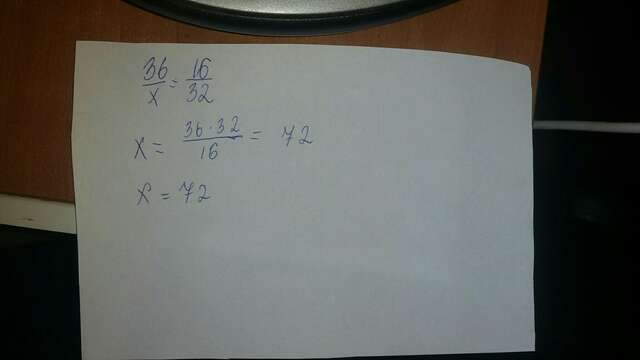 36/x = 16/32
x = 36·32/16 = 72
x = 72